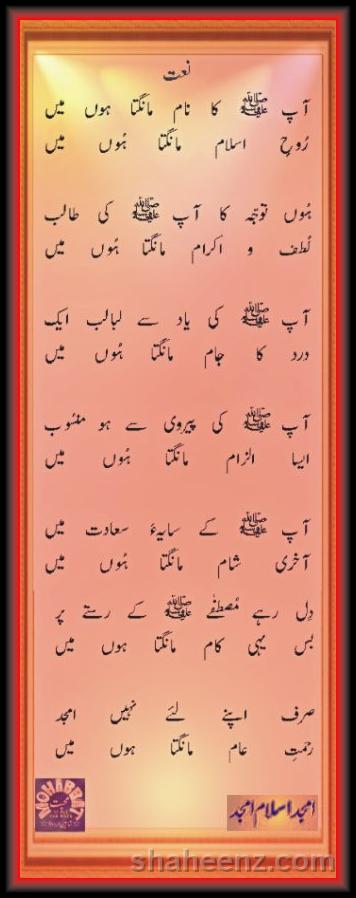 نعت
آپ ﷺ کا نام مانگتا ہوں میں
رُوحِ اسلام مانگتا ہُوں میں
ہُوں توجّہ کا آپ ﷺ کی طالب
لُطف و اکرام مانگتا ہُوں میں
آپ ﷺ کی یاد سے لبالب ایک
درد کا جام مانگتا ہُوں میں
آپ ﷺ کی پیروی سے ہو منسُوب
ایسا الزام مانگتا ہُوں میں
آپ ﷺ کے سایۂ سعادت میں
آخری شام مانگتا ہُوں میں
دِل رہے مُصطفٰے ﷺ کے رستے پر
بس یہی کام مانگتا ہوں میں
صرف اپنے لئے نہیں امجد
رحمتِ عام مانگتا ہوں میں
MOHABBAT
محبت
امجد اسلام امجد
shaheenz.com